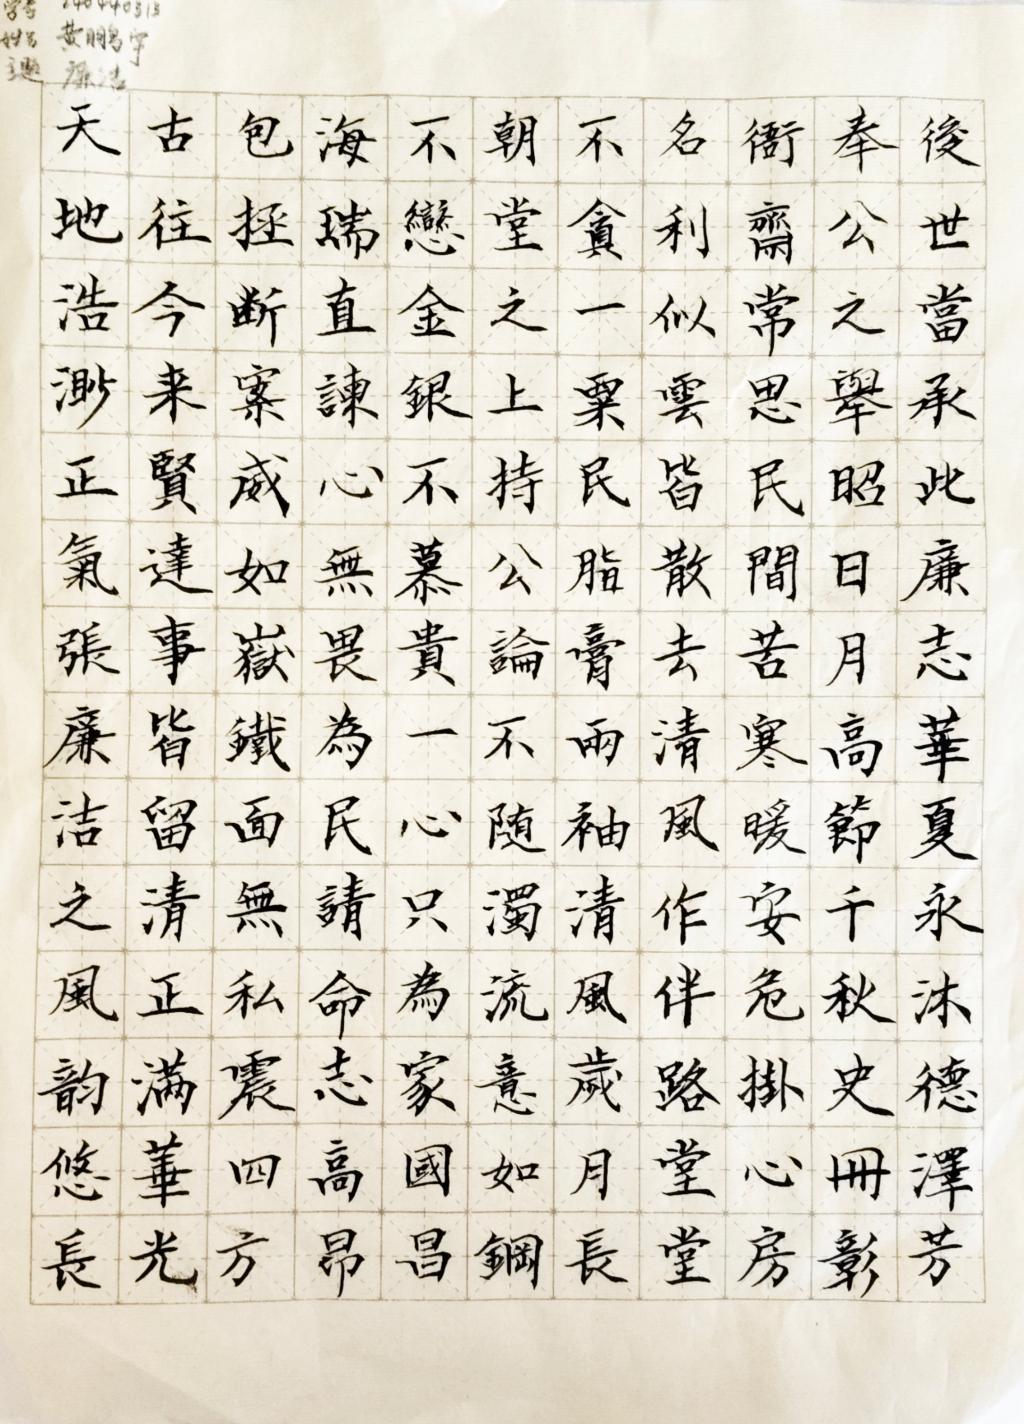 学号
姓名 黄鹏宇
主题 廉洁
天地浩渺正氣張廉洁之風韵悠長
古往今来賢達事皆留清正满華光
包拯断案威如嶽鐵面無私震四方
海瑞直諫心無畏為民請命志高昂
不戀金銀不慕貴一心只為家國昌
朝堂之上持公論不随濁流意如鋼
不貪一粟民脂膏兩袖清風歲月長
名利似雲皆散去清風作伴路堂堂
衙齋常思民間苦寒暖安危掛心房
奉公之舉昭日月高節千秋史冊彰
後世當承此廉志華夏永沐德澤芳